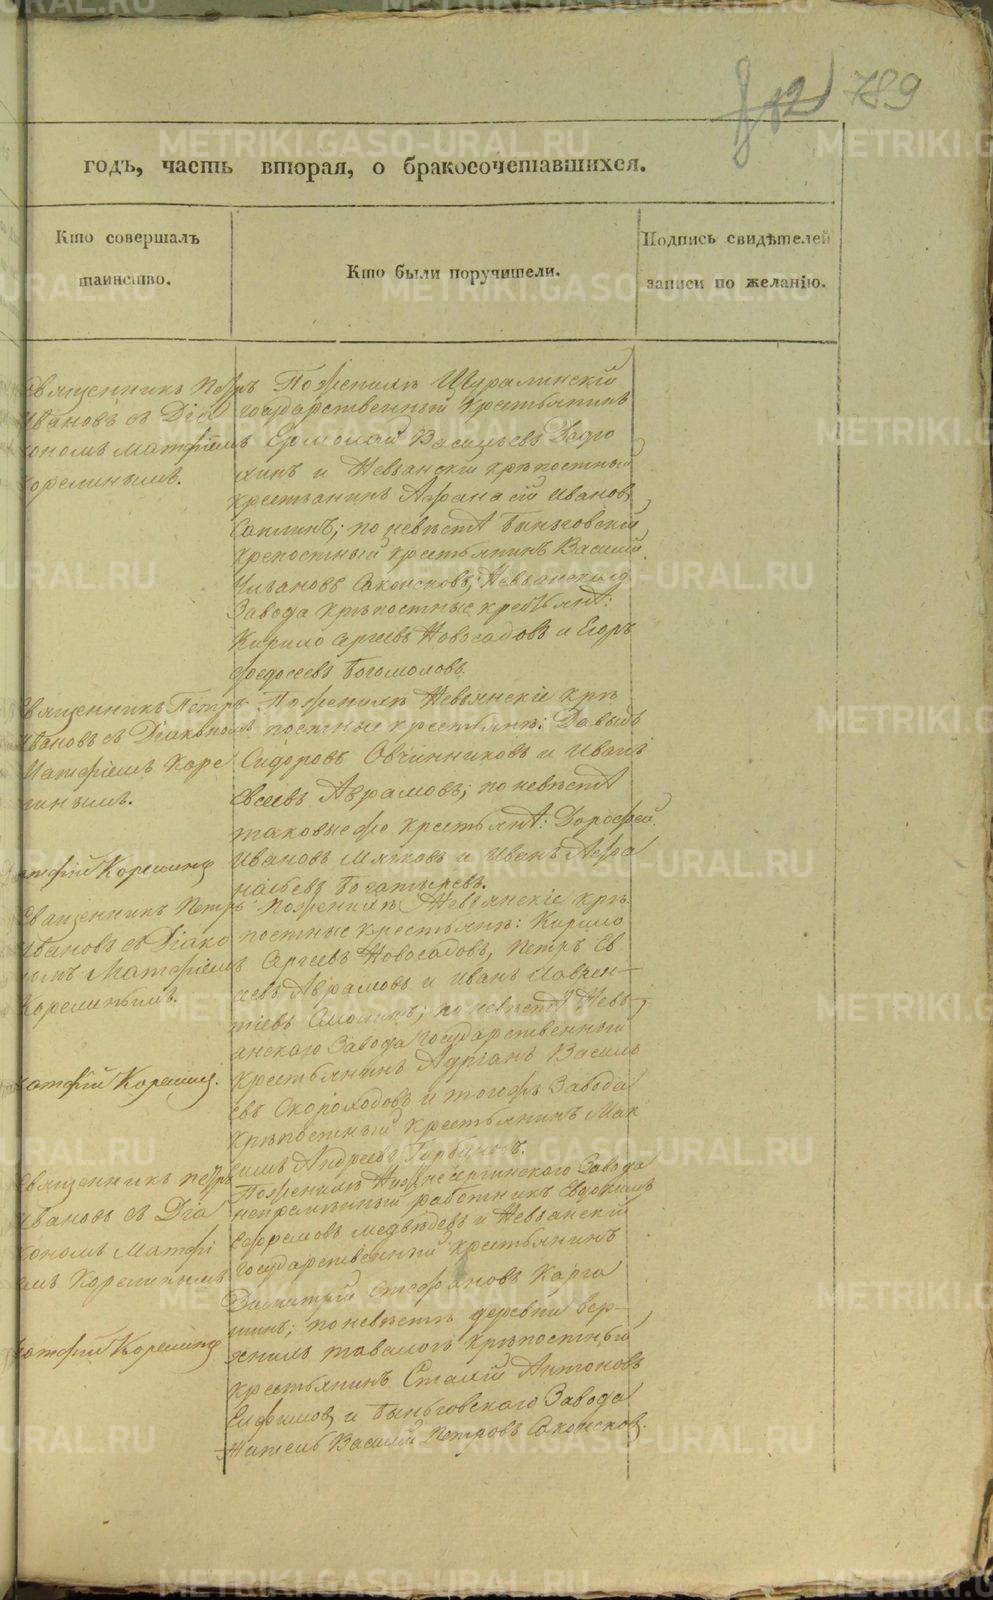 789
годъ, часть вторая, о бракосочетавшихся.
Кто совершалъ
таинство.
Кто были поручители.
Подпись свидѣтелей
записи по желанію.
Священникъ Петръ
Ивановъ съ Діа
кономъ Матфіемъ
Корелинымъ.
По женихѣ Шуралинскій
государственный крестьянинъ
Ермолай Васильевъ
хинъ и Невьянскій крѣпостный
крестьянинъ Афанасій Ивановъ
Саплинъ; по невѣстѣ Быньговскій
крепостный крестьянинъ Василій
Ивановъ Невьянскаго
Завода крѣпостные крестьянѣ:
Кирило Сергеевъ Новосадовъ и Егоръ
Федосеевъ Богомоловъ.
Священникъ Петръ
Ивановъ съ Діакономъ
Матфіемъ Коре
линымъ.
Матфій Корелинъ
По женихѣ Невьянскіе крѣ
постные крестьянѣ: Давыдъ
Сидоровъ Овчинниковъ и Иванъ
Евсеевъ Аврамовъ; по невѣстѣ
таковые же крестьянѣ: Дорофей
Ивановъ Мягковъ и Иванъ Афа
насьевъ Богатыревъ.
Священникъ Петръ
Ивановъ съ Діако
номъ Матфіемъ
Корелинымъ.
Матфій Корелинъ.
По женихѣ Невьянскіе крѣ
постные крестьянѣ: Кирило
Сергеевъ Новосадовъ, Петръ Ев
сеевъ Аврамовъ и Иванъ Лаврен-
тіевъ Смолинъ; по невѣстѣ Невь
янскаго Завода государственный
крестьянинъ Василь
евъ Скороходовъ и тогожъ Завода
крѣпостный крестьянинъ Мак
симъ Андреевъ Горбуновъ.
Священникъ Петръ
Ивановъ съ Діа
кономъ Матфі
емъ Корелинымъ
Матфій Корелинъ
По женихѣ Нижнесергинскаго Завода
непремѣнный работникъ Евдокимъ
Ефремовъ Медвѣдевъ и Невьянскій
государственный крестьянинъ
Димитрій Стефановъ Карга
шинъ; по невѣстѣ деревни Вер-
хнихъ Тавологъ крѣпостный
крестьянинъ Антоновъ
и Быньговскаго Завода
житель Василій Петровъ
METRIKI.GASO-URAL.RU